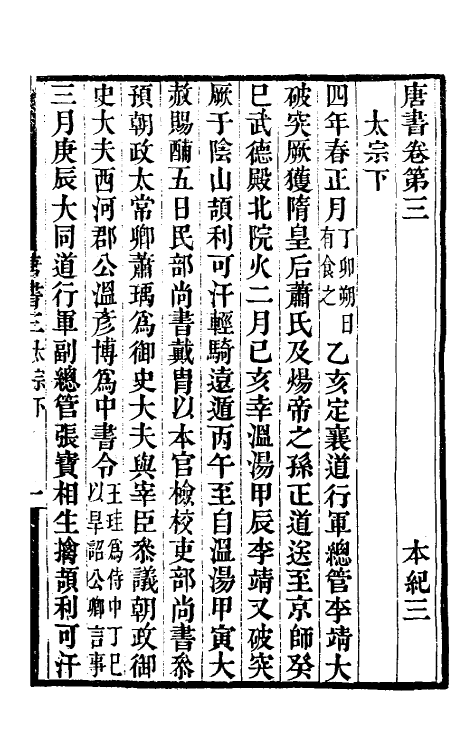 唐書卷第三　本紀三
太宗下
四年春正月丁卯朔日有食之乙亥定襄道行軍總管李靖大
破突厥獲隋皇后蕭氏及煬帝之孫正道送至京師癸
巳武德殿北院火二月己亥幸溫湯甲辰李靖又破突
厥于陰山頡利可汗輕騎遠遁丙午至自溫湯甲寅大
赦賜酺五日民部尚書戴胄以本官檢校吏部尚書叅
預朝政太常卿蕭瑀爲御史大夫與宰臣叅議朝政御
史大夫西河郡公溫彦博爲中書令王珪爲侍中丁巳以旱詔公卿言事
三月庚辰大同道行軍副總管張寶相生擒頡利可汗
唐書三太宗下　一